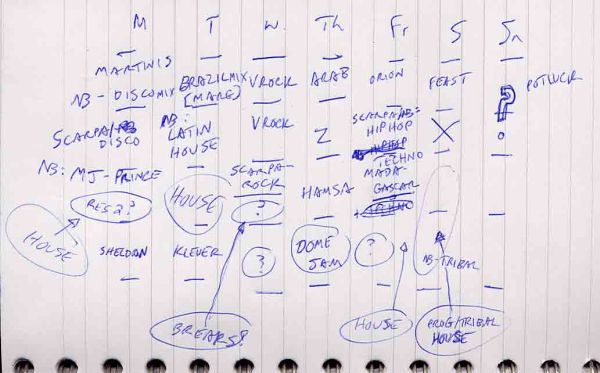 M T W Th Fr S Sn
MARTINIS BRAZILMIX VROCK ARAB ORION FEAST POTLUCK
NB - DISCOMIX [MARE] ?
SCARPA/NB NB: VROCK Z SCARPA/NB= X
DISCO LATIN HIPHOP
HOUSE TECHNO
NB: MJ-PRINCE SCARPA- HAMSA MADA-
ROCK GASCAR
RES2? HOUSE ?
HOUSE
SHELDON KLEVER ? DOME ? NB-TRIBAL
JAM
BREAKS? HOUSE PROG/TRIBAL
HOUSE